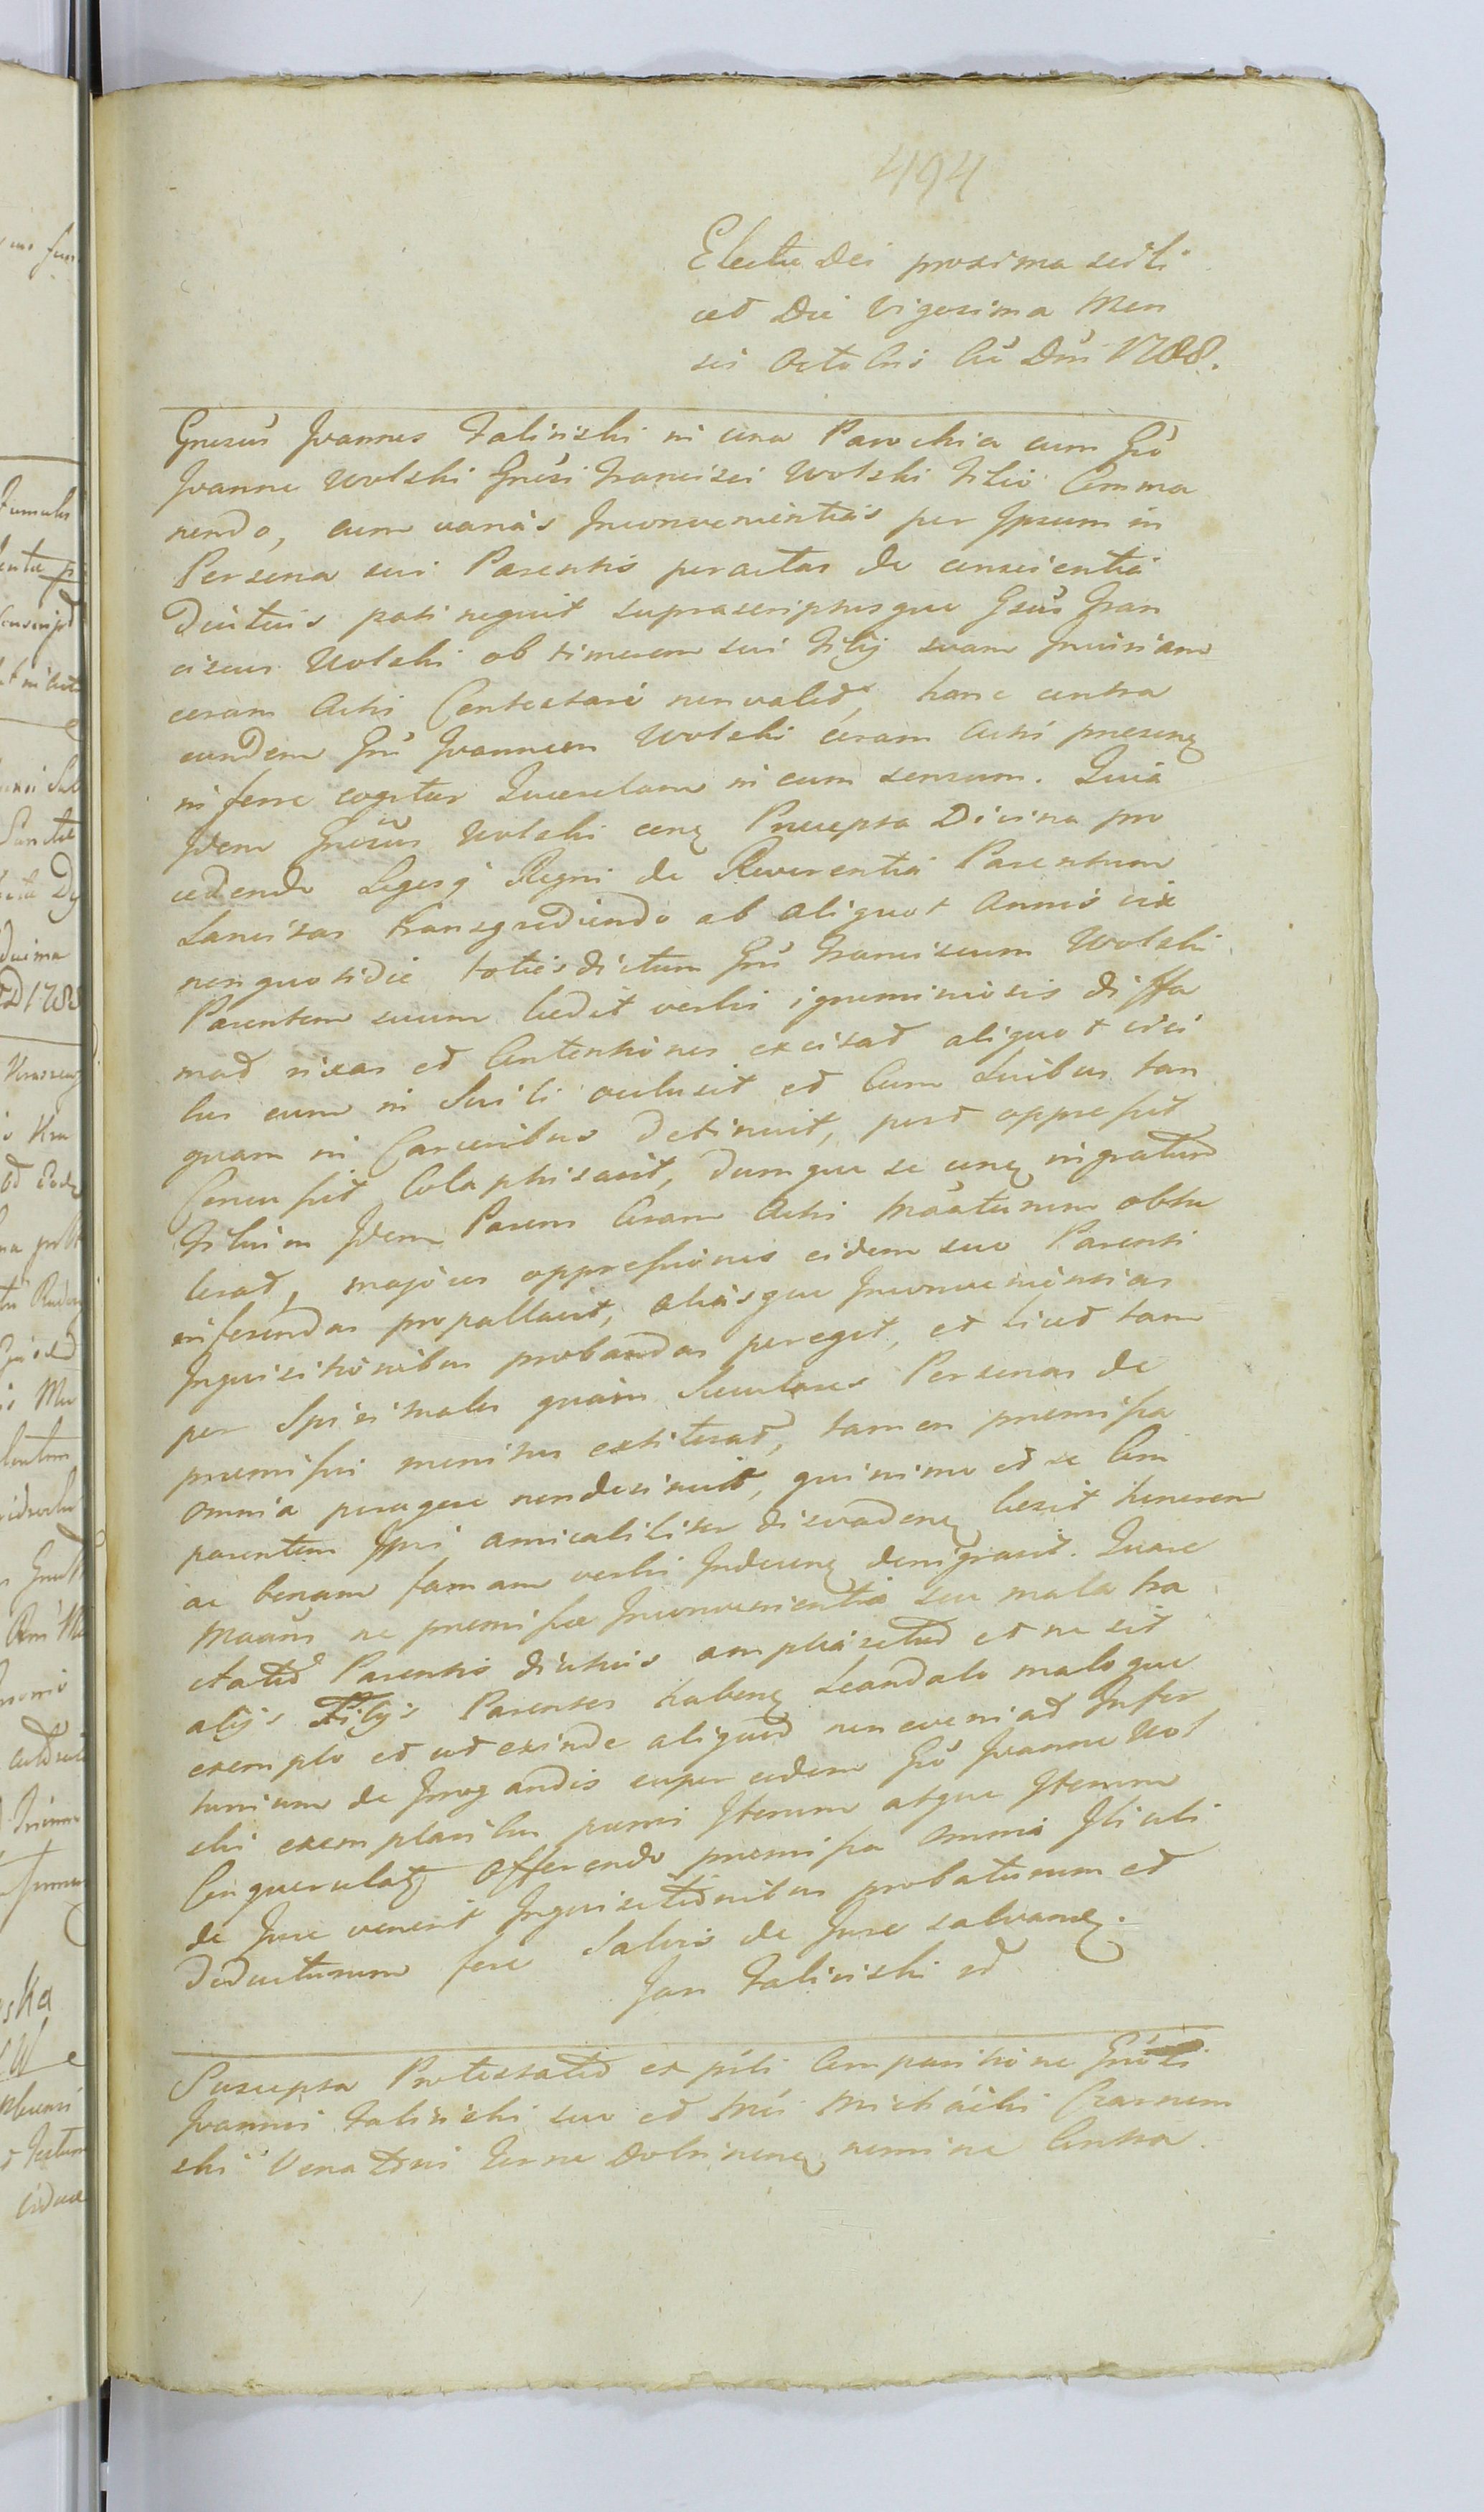 494
Electu Dei proxima scili
cet Die Vigesima Men
sis Octobris Aō Dni 1788.
Gnrsus Joannes Falinski in una Parochia cum Gō
Joanne Wolski Gnrsi Francisci Wolski Filio Comma
nendo, cum varias Inconvenientias per Ipsum in
Persona sui Parentis peractas de conscientia
Diutius pati nequit suprascriptusque Gsus Fran
ciscus Wolski ob timorem sui Filij suam Injuriam
coram Actis Contestari non valet, hanc contra
eundem Gn Joannem Wolski coram Actis presenq
in ferre cogitur Querelam in eum sensum. Quia
Idem Gnrsus Wolski conq Precepta Divina pro
cedendo Legesq Regni de Reverentia Parentum
Sancitas transgrediendo ab aliquot Annis vix
non quotidie totiesdictum Gn Franciscum Wolski
Parentem suum ledit verbis ignominiosis diffa
mat rixas et Contentiones excitat aliquot vici
bus eum in Suili oclusit et Cum Suibus tan
quam in Carceribus Detinuit, post oppressit
Concussit Colaphisavit, Dumque se conq ingratum
Filium Idem Parens Coram Actis obtu
lerat, majores oppressiones eidem suo Parenti
inferendas propallavit, aliasque Inconvenientias
Inquisitionibus probandas peregit, et licet tam
per Spirituales quam Seculares Personas de
premissis monitus extiterat, tamen premissa
omnia peragere non desinuit, quinimo et se Com
parentem Ipsi amicabiliter disvadenq lesit honorem
ac bonam famam verbis Indecenq denigravit. Quare
ne premissae Inconvenientiae seu mala tra
ctatio Parentis diutius amplietur et ne sit
alijs Filijs Parentes habenq Scandalo maloque
exemplo et ut exinde aliquid non eveniat Infor
tunium de Irrogandis super eodem Gō Joanne Wol
ski exemplaribus penis Iterum atque Iterum
Conquerulatq Offerendo premissa omnia Ibi ubi
de Jure venerit Inquisitionibus probaturum et
Deducturum fore Salvis de Jure salvanq.
Jan Falinski
Suscepta Protestatio ex psti Comparitione Gnrosi
Joannis Falinski suo et Michaelis Czarnom
ski Venatoris Terre Dobrinenq nomine Contra.